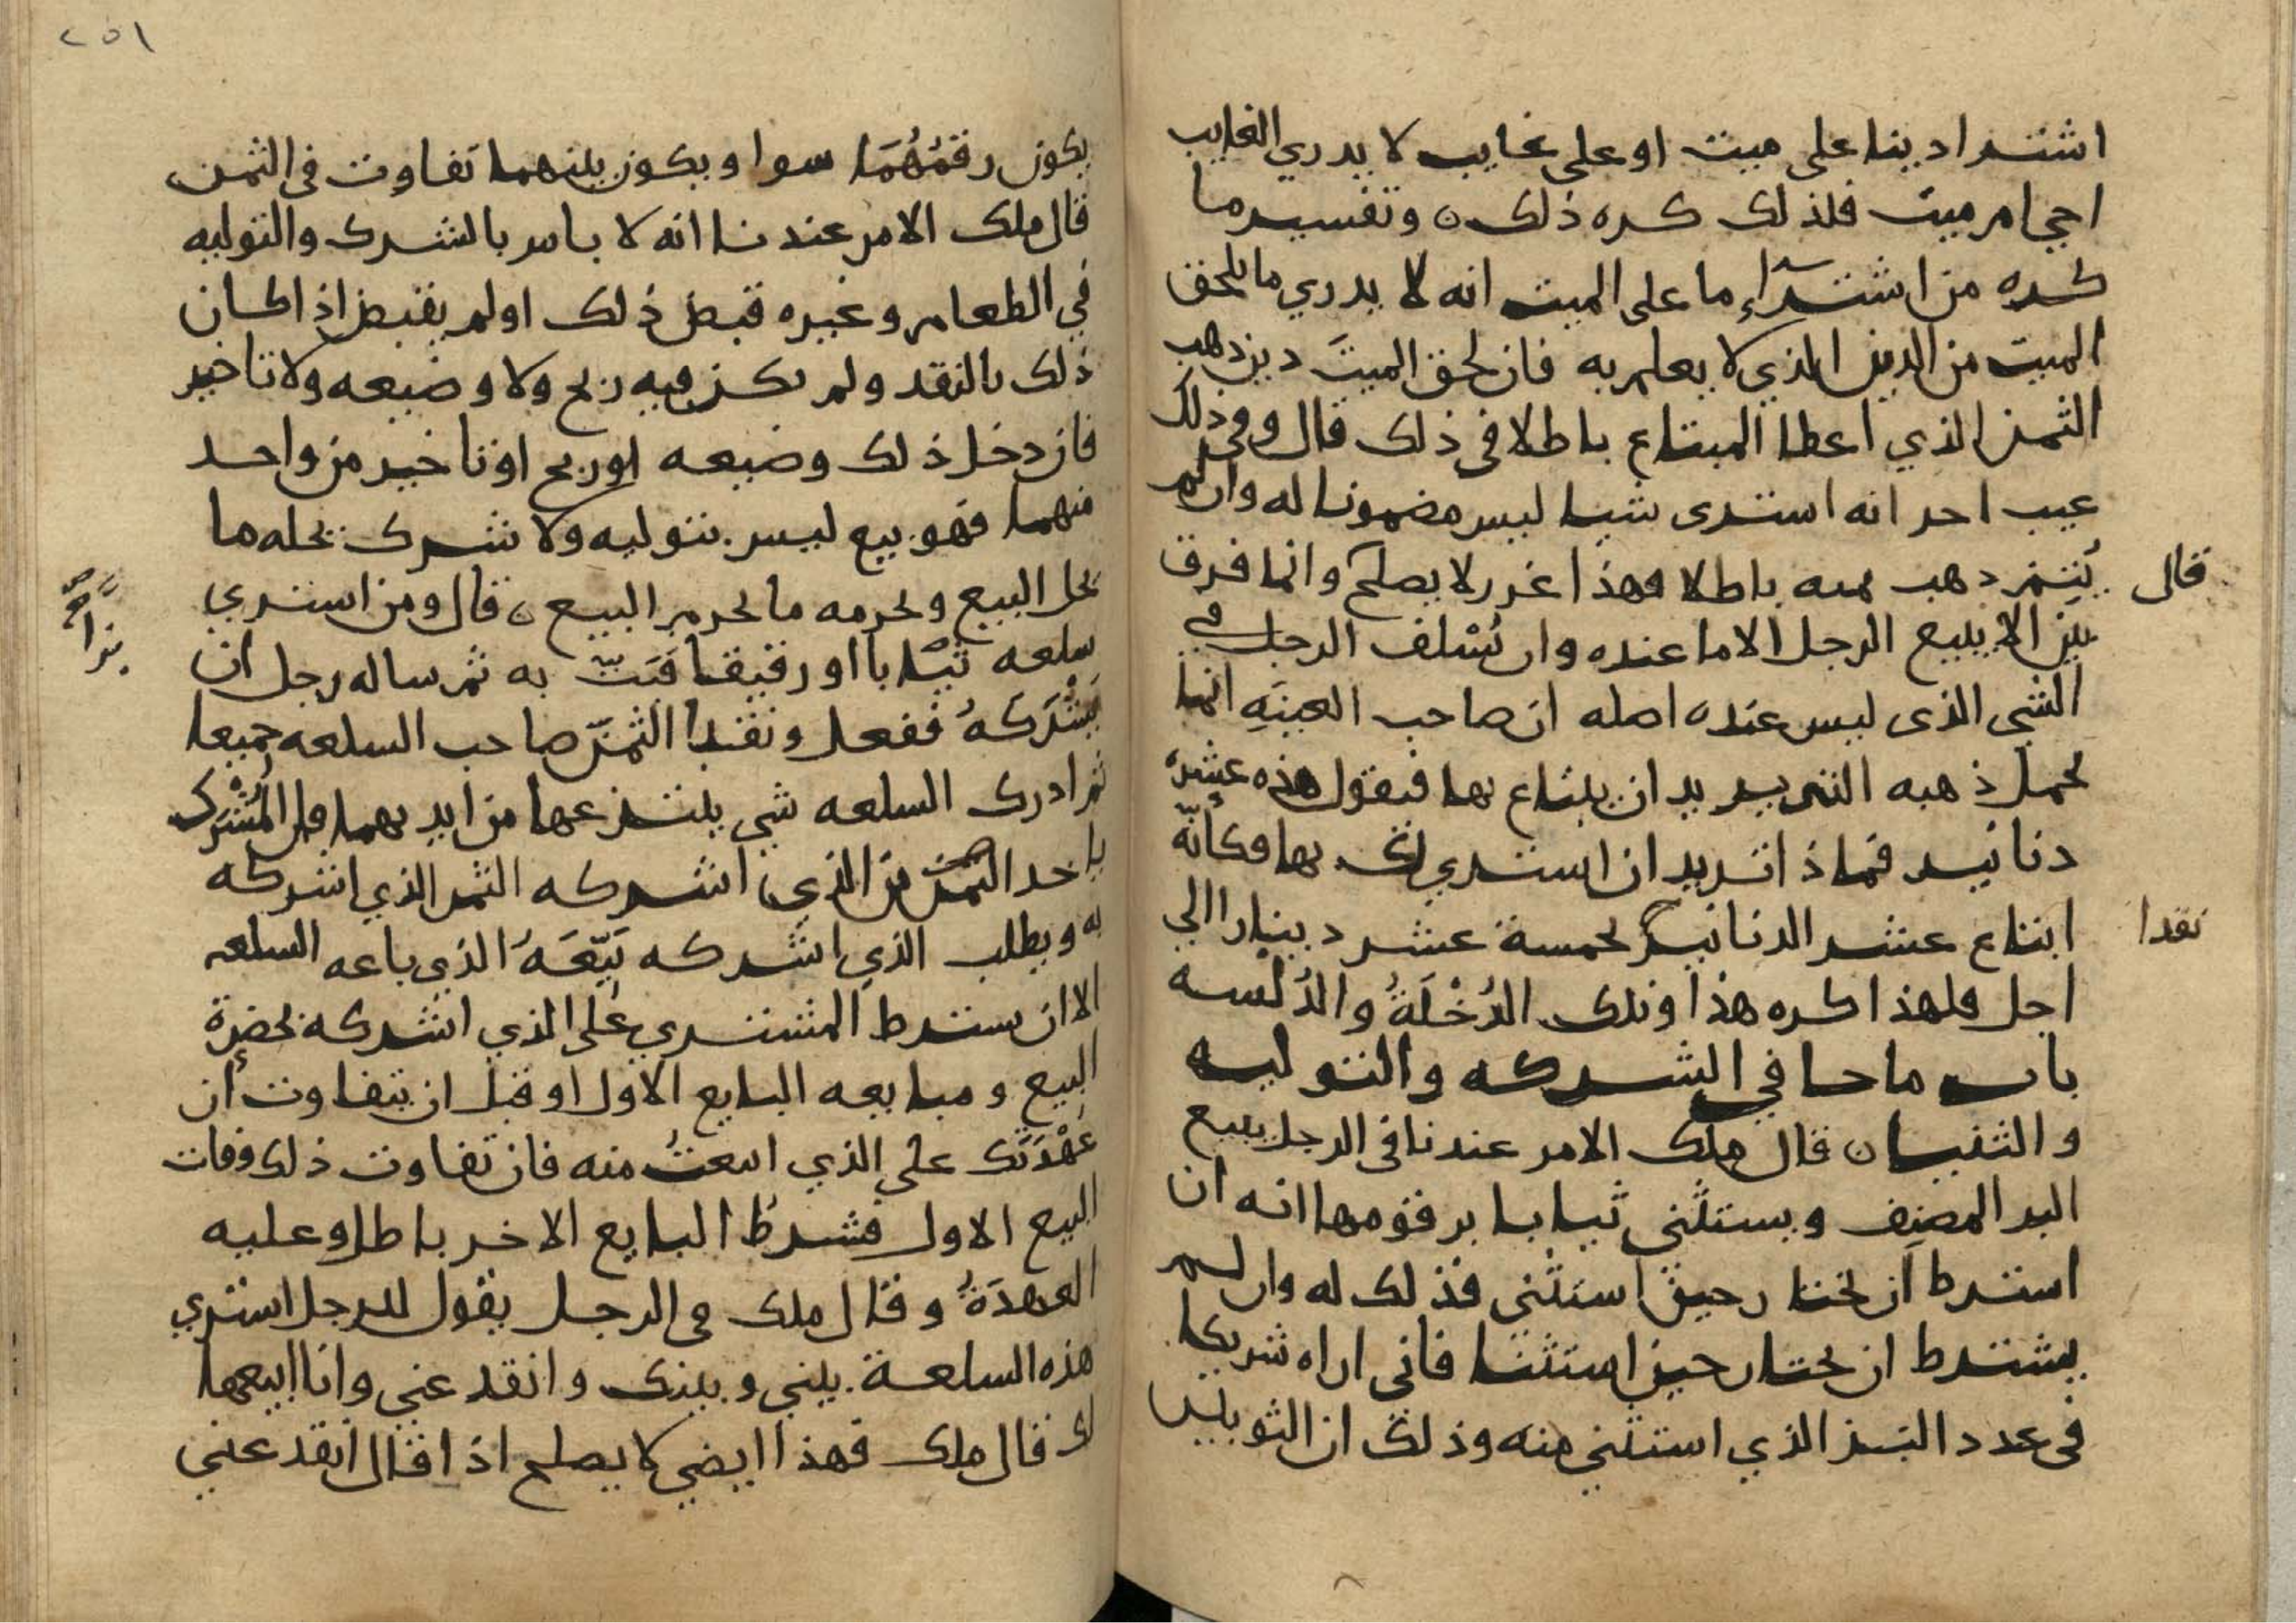 اشترا دينا على ميت او على غايب لا يدري الغايب
احي ام ميت فلذلك كره ذلك ٥ وتفسير ما
كره من اشتراء ما على الميت انه لا يدري ما يلحق
الميت من الدين الذي لا يعلم به فان لحق الميت دين ذهب
الثمن الذي اعطا المبتاع باطلا في ذلك قال وفي ذلك
عيب اخر انه اشترى شيا ليس مضمونا له وان لم
يتم ذهب ثمنه باطلا فهذا غرر لا يصلح وانما فرق
قال
بين الا يبيع الرجل الا ما عنده وان يسلف الرجل في
الشي الذي ليس عنده اصله ان صاحب العينه انما
يحمل ذهبه التي يريد ان يبتاع بها فيقول هذه عشرة
دنانير فماذا تريد ان اشتري لك بها فكأنه
ابتاع عشر الدنانير بخمسة عشر دينارا الي
نقدا
اجل فلهذا كره هذا وتلك الدُخْلَةُ والدُلْسه
باب ما جا في الشركه والتوليه
والثنيا ٥ قال ملك الامر عندنا في الرجل يبيع
البز المصنف ويستثني ثيابا برقومها انه ان
اشترط ان يختار حين استثنى فذلك له وان لم
يشترط ان يختار حين استثنا فاني اراه شريكا
في عدد البز الذي استثني منه وذلك ان الثوبين
٢٥١
يكون رقمُهُمَا سوا ويكون بينهما تفاوت في الثمن
قال ملك الامر عندنا انه لا باس بالشرك والتوليه
في الطعام وغيره قبض ذلك او لم يقبض اذا كان
ذلك بالنقد ولم يكن فيه ربح ولا وضيعه ولا تاخير
فان دخل ذلك وضيعه او ربح او تاخير من واحد
منهما فهو بيع ليس بتوليه ولا شرك يحله ما
يحل البيع ويحرمه ما يحرم البيع ٥ قال ومن اشتري
سلعه ثيابا او رقيقا فبَتّ به ثم ساله رجل ان
بزا
يُشْرَكَهُ ففعل ونقدا الثمنَ صاحب السلعه جميعا
ثم ادرك السلعه شي ينتزعها من ايديهما فان المُشْرَك
ياخد الثمن من الذي اشركه الثمن الذي اشركه
به ويطلب الذي اشركه بَيّعَهُ الذي باعه السلعه
الا ان يشترط المشتري على الذي اشركه بحضرة
البيع ومبايعه البايع الاول او قبل ان يتفاوت أن
عُهْدَتَك على الذي ابتعتُ منه فان تفاوت ذلك وفات
البيع الاول فشرط البايع الاخر باطل وعليه
العهدَةُ وقال ملك في الرجل يقول للرجل اشتري
هذه السلعة بيني وبينك وانقد عني وانا ابيعها
لك قال ملك فهذا ايضي لا يصلح اذا قال انقد عني